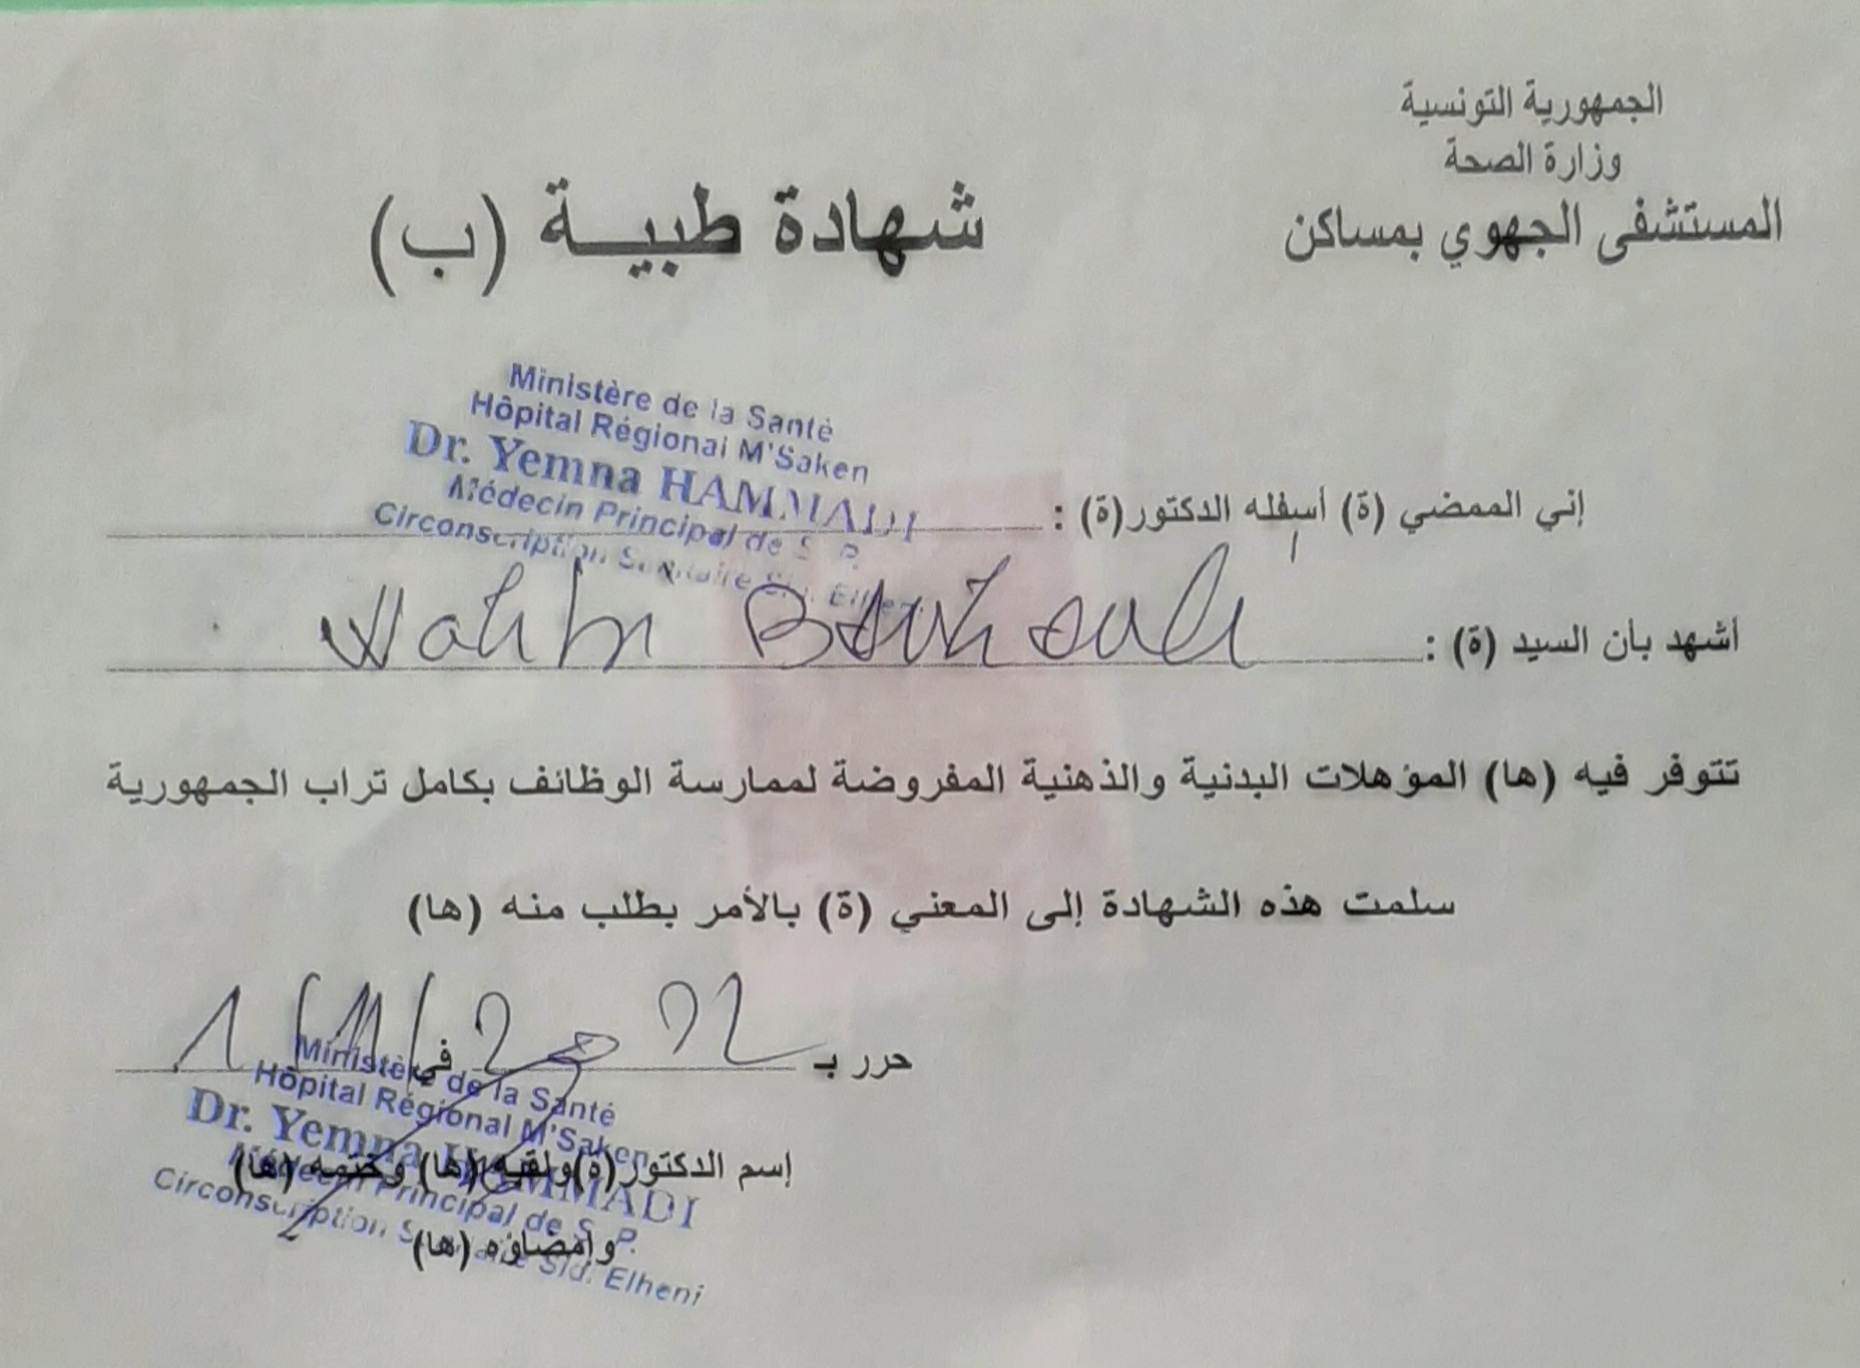 الجمهورية التونسية
وزارة الصحة
المستشفى الجهوي بمساكن
شهادة طبيـــة (ب)
Ministère de la Santé
Hôpital Régional M'Saken
Dr. Yemna HAMMADI
Médecin Principal de S. P.
Circonscription Sanitaire Sid. Elheni
إني الممضي (ة) أسفله الدكتور(ة) :
أشهد بأن السيد (ة) :
تتوفر فيه (ها) المؤهلات البدنية والذهنية المفروضة لممارسة الوظائف بكامل تراب الجمهورية
سلمت هذه الشهادة إلى المعني (ة) بالأمر بطلب منه (ها)
حرر بـ في
1/11/2022
Ministère de la Santé
Hôpital Régional M'Saken
Dr. Yemna HAMMADI
Médecin Principal de S. P.
Circonscription Sanitaire Sid. Elheni
إسم الدكتور(ة)ولقبه (ها) وختمه (ها)
وإمضاؤه (ها)